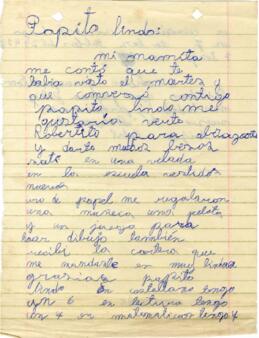 Papito lindo:
mi mamita
me contó que te
había visto el martes y
que converso contigo
papito lindo me
gustaria verte
Robertito para abrazarte
y darte muchos besos
en una velada
en la escuela vestidos
nuevos
uno de papel me regalaron
una muñeca una pelota
y un juego para
hacer dibujo también
recibi la cartera que
me mandaste es muy linda
grasias papito
lindo en castellano tengo
un 6 en lectura tengo
un 4 en matematicas tengo 4